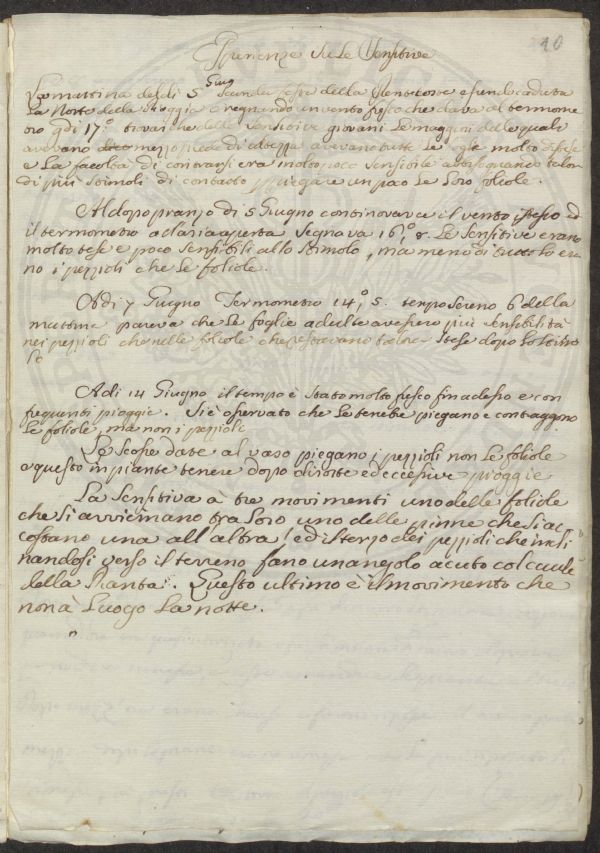 Esperienze su le Sensitive
10
La mattina del di 5 Giug
La Notte della Pioggia e regnando un vento fresco che dava al termome
tro gdi 17.° trovai che delle Sensitive giovani le maggiori delle quali
avevano mezzo piede di altezza avevano tutte le foglie molto distese
e La facoltà di contrarsi era molto poco sensibile abbisognando talon
di più stimoli di contatto p piegare un pao Le Loro foliole.
Al dopo pranzo di 5 Giugno continovava il vento istesso ed
il termometro a l'aria aperta Segnava 16°, 8. Le Sensitive erano
molto tese e poco sensibili allo stimolo, ma meno di tutto lo era
no i pezzioli che le foliole.
Adi 7 Giugno Termometro 14,° 5. tempo sereno 6 della
mattina pareva che le foglie adulte avessero più sensibilità
nei pezzioli che nelle foliole che restavano stese dopo lo stimo
lo
Adi 14 Giugno il tempo è stato molto fresco fin adesso e con
frequenti pioggie. Si è osservato che le tenebre piegano e contraggono
le foliole, ma non i pezzioli
Le scosse date al vaso piegano i pezzioli non le foliole
e questo in piante tenere dopo dirotte ed eccessive pioggie
La Sensitiva a tre movimenti uno delle foliole
che si avvicinano tra Loro uno delle pinne che si ac=
costano una all'altra, ed il terzo dei pezzioli che incli
nandosi verso il terreno fano un angolo acuto col caule
della Pianta. Questo ultimo è il movimento che
non à Luogo La notte.